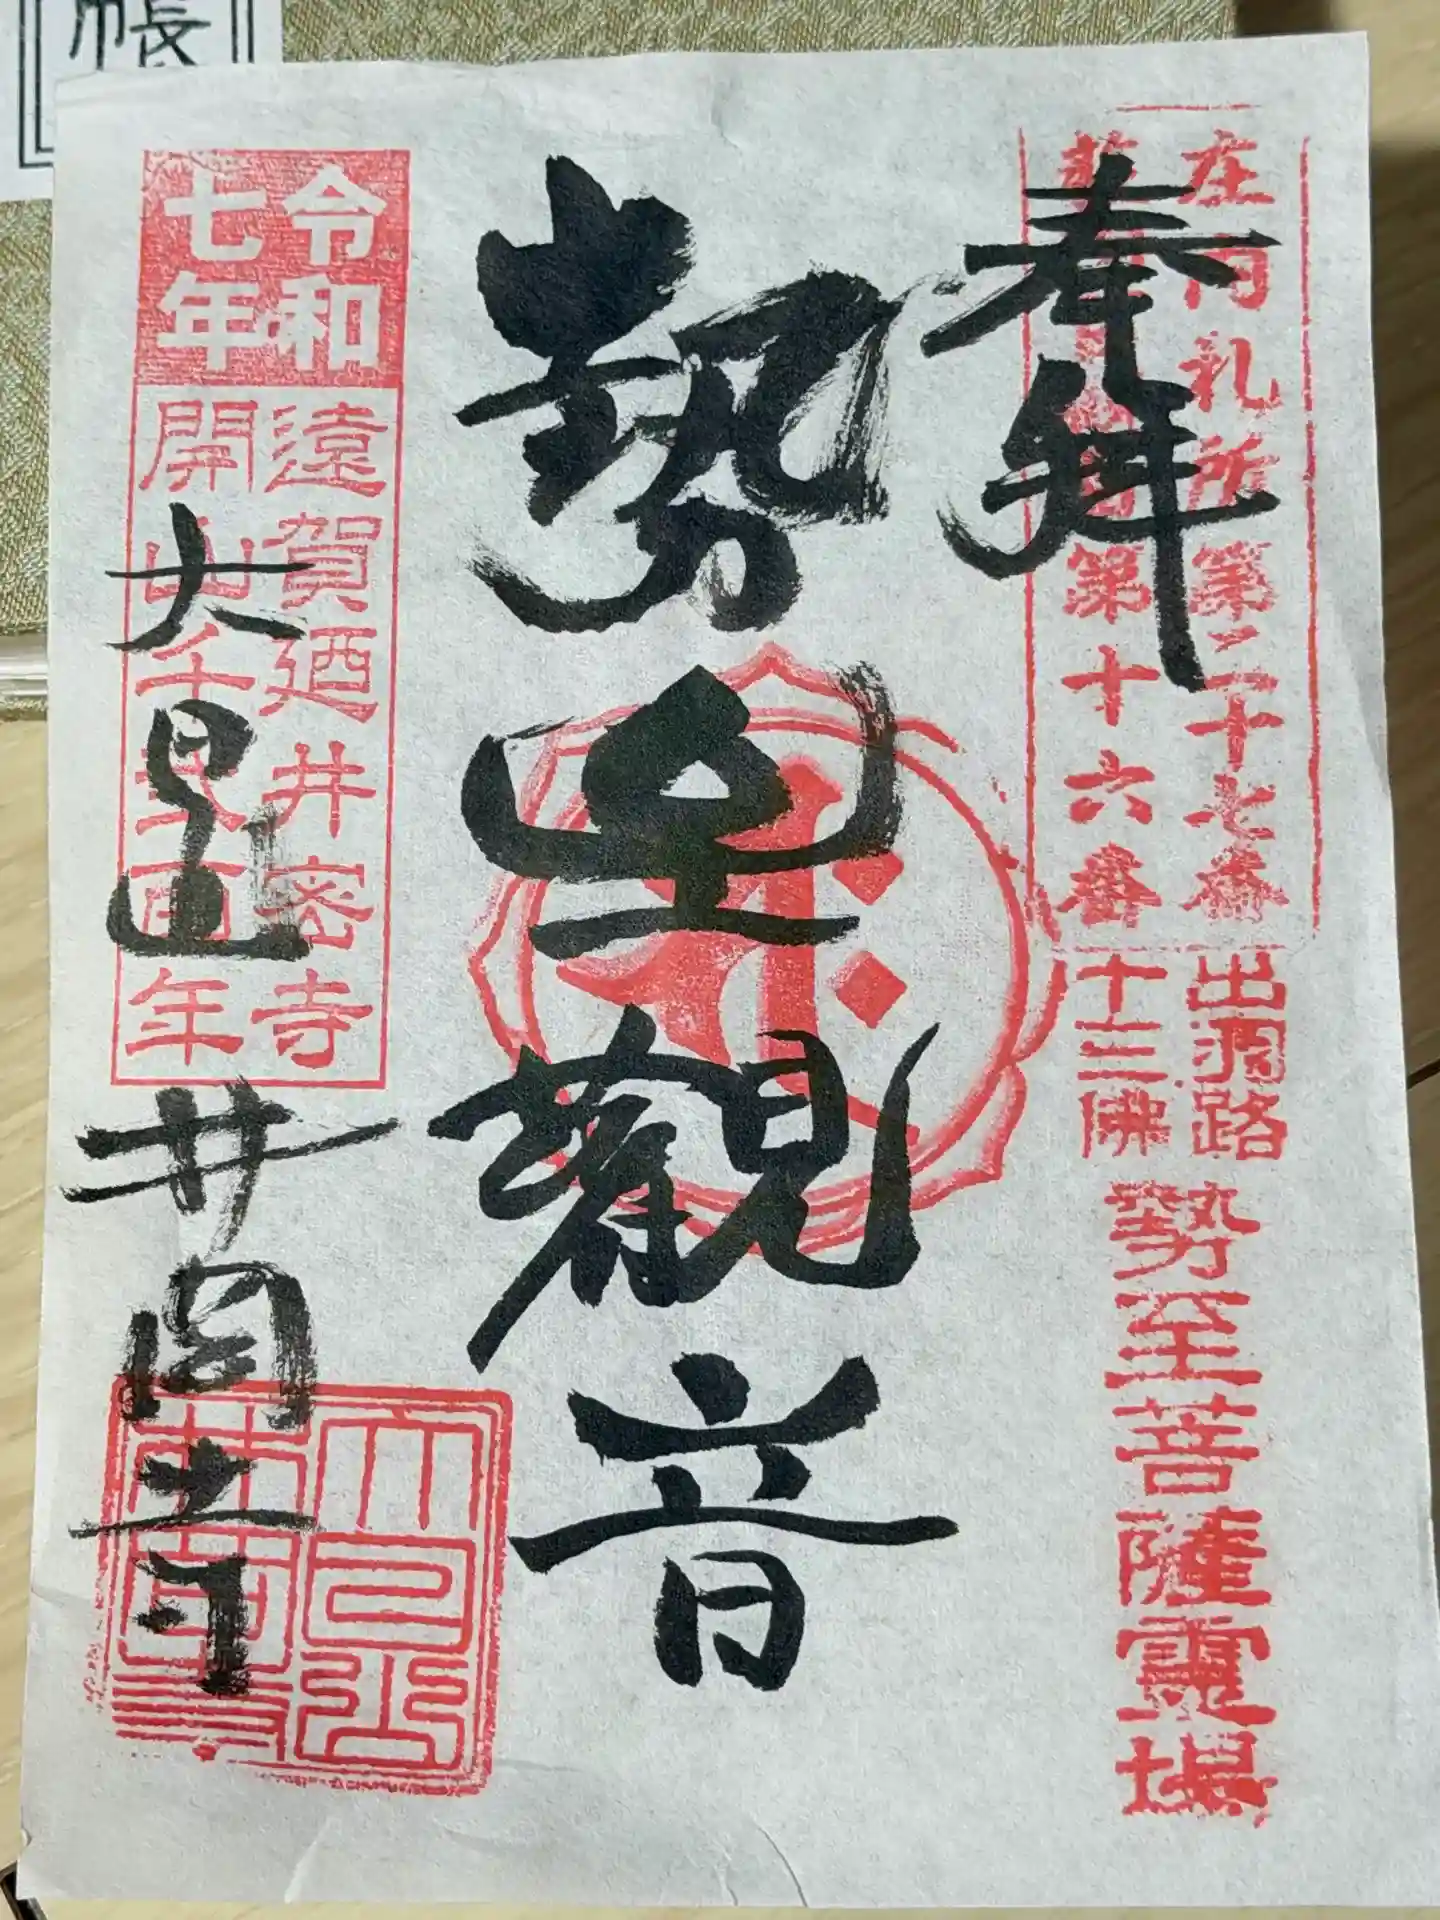 帳
奉拝
庄内札所第二十七番
第十六番
出羽路
十三佛
勢至菩薩霊場
勢至觀音
令和
七年
遠賀廼井密寺
開山千弐百年
大日山
井岡寺